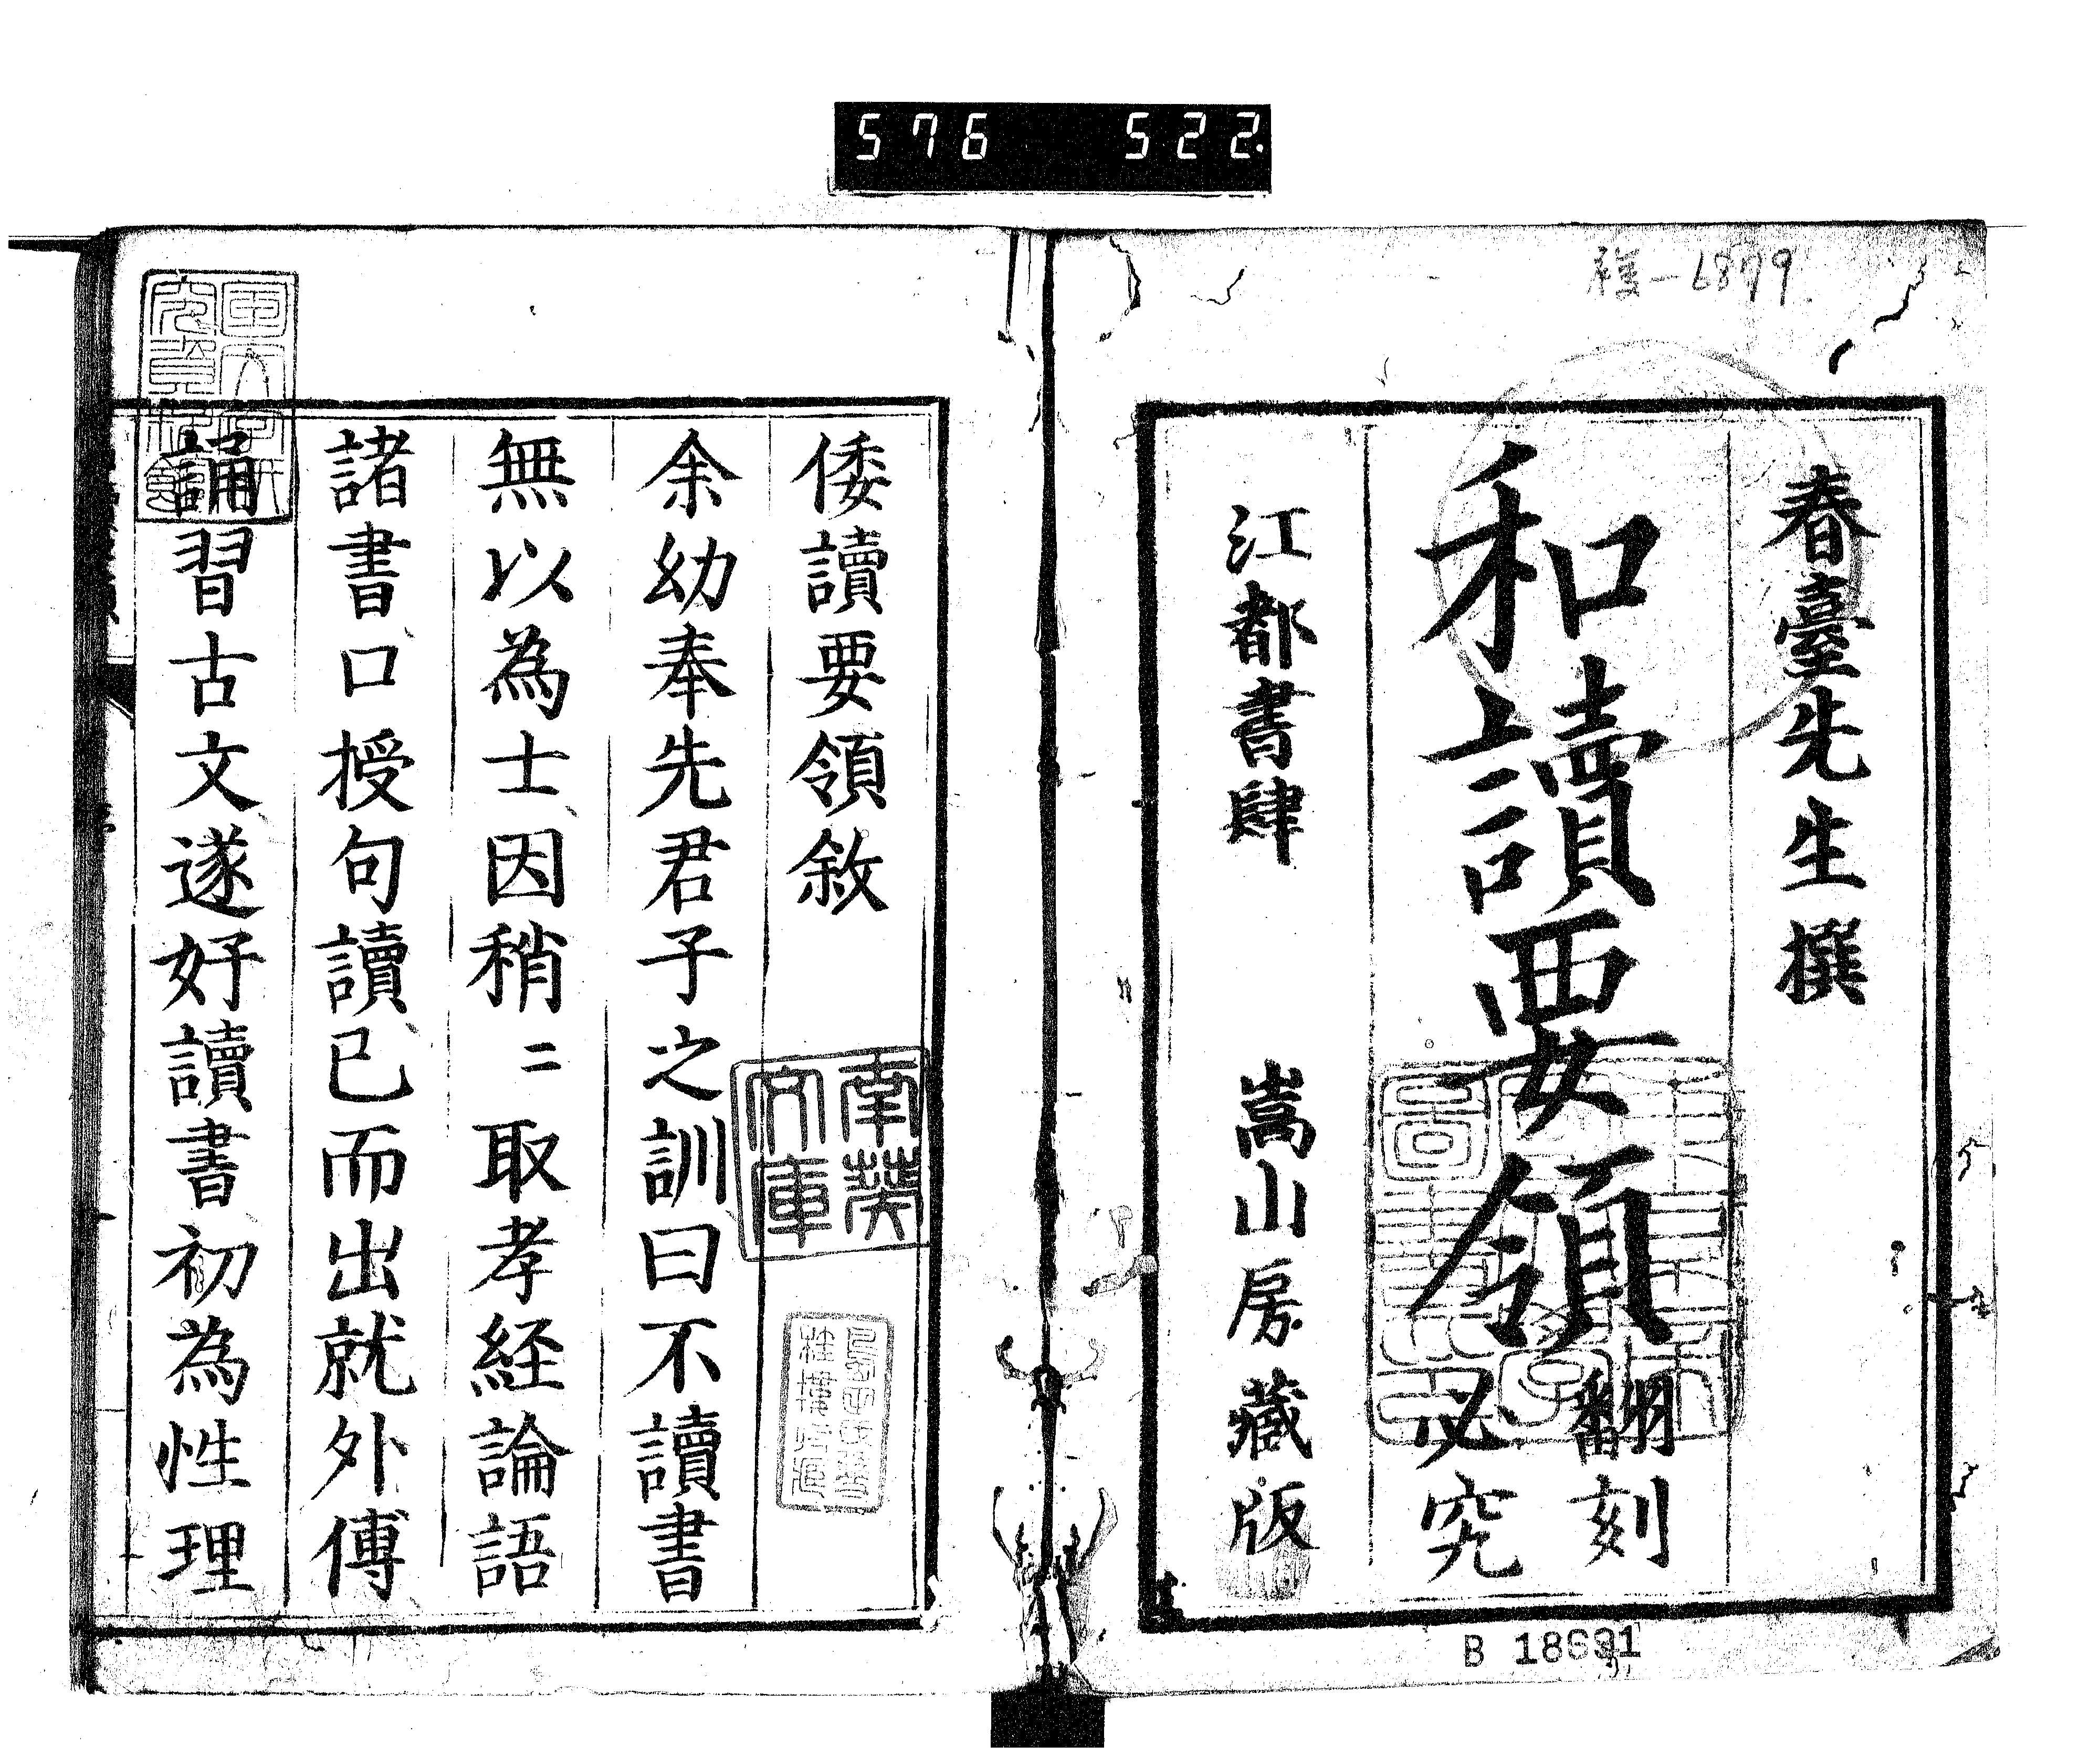 576 522.
春臺先生撰
和讀要領
翻刻
必究
江都書肆 嵩山房藏版
B 18
南葵
文庫
倭讀要領敘
余幼奉先君子之訓曰不讀書
無以為士因稍〻取孝経論語
諸書口授句讀已而出就外傅
誦習古文遂好讀書初為性理